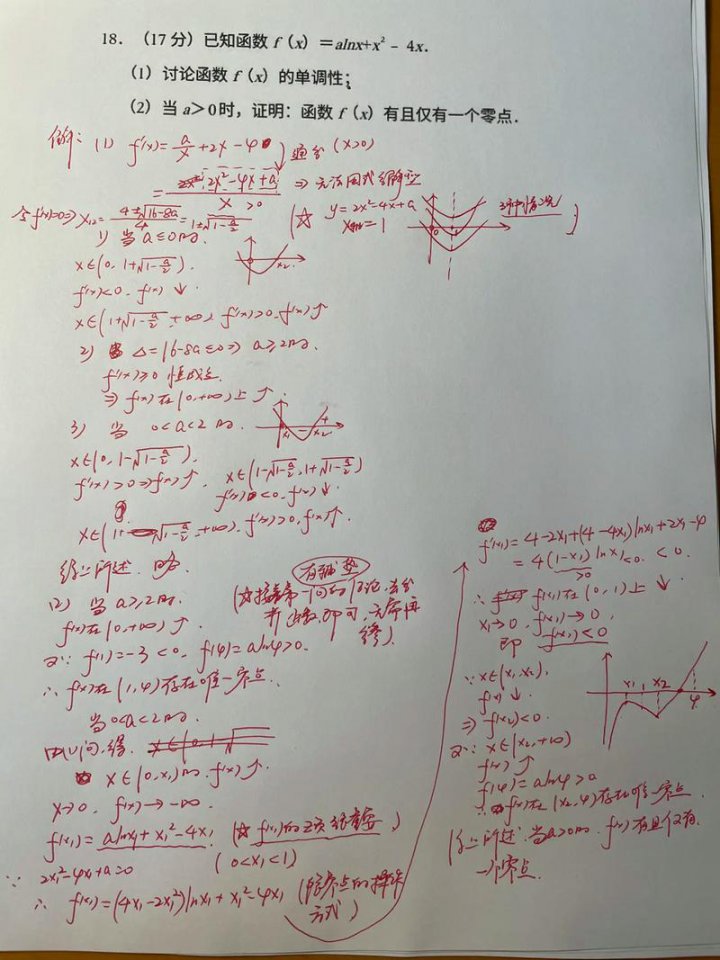 18. （17分）已知函数 f（x）＝alnx+x² - 4x.
（1）讨论函数 f（x）的单调性；
（2）当 a＞0时，证明：函数 f（x）有且仅有一个零点.
解：(1) f'(x)=a/x+2x-4 通分 (x>0)
=(2x²-4x+a)/x >0 ⇒无法因式分解型
令f'(x)=0⇒x₁,₂=(4±√(16-8a))/4=1±√(1-a/2) (☆ y=2x²-4x+a 3种情况)
x对=1
1) 当a≤0时.
x∈(0,1+√(1-a/2)).
f'(x)<0.f(x)↓.
x∈(1+√(1-a/2),+∞), f'(x)>0.f(x)↑
2) Δ=16-8a≤0⇒a≥2时.
f'(x)≥0恒成立
⇒f(x)在(0,+∞)上↑.
3) 当0<a<2时.
x∈(0,1-√(1-a/2)),
f'(x)>0⇒f(x)↑. x∈(1-√(1-a/2),1+√(1-a/2))
f'(x)<0.f(x)↓.
x∈(1+√(1-a/2),+∞).f'(x)>0.f(x)↑.
综上所述.略.
(2) 当a≥2时.
f(x)在(0,+∞)↑.
又∵f(1)=-3<0,f(4)=aln4>0.
∴f(x)在(1,4)存在唯一零点.
当0<a<2时.
由(1)问,得.
x∈(0,x₁)时.f(x)↑.
x→0,f(x)→-∞.
f(x₁)=alnx₁+x₁²-4x₁ (☆f(x₁)的正负很重要)
∵2x₁²-4x₁+a=0 (0<x₁<1)
∴f(x₁)=(4x₁-2x₁²)lnx₁+x₁²-4x₁ (隐零点的操作方式)
f'(x₁)=4-2x₁+(4-4x₁)lnx₁+2x₁-4
=4(1-x₁)lnx₁<0.<0.
>0
∴f(x₁)在(0,1)上↓.
x₁→0,f(x₁)→0,
即f(x₁)<0
∵x∈(x₁,x₂),
f(x)↓.
⇒f(x₂)<0.
又∵x∈(x₂,+∞)
f(x)↑
f(4)=aln4>0
∴f(x)在(x₂,4)存在唯一零点.
综上所述:当a>0时.f(x)有且仅有
一个零点.